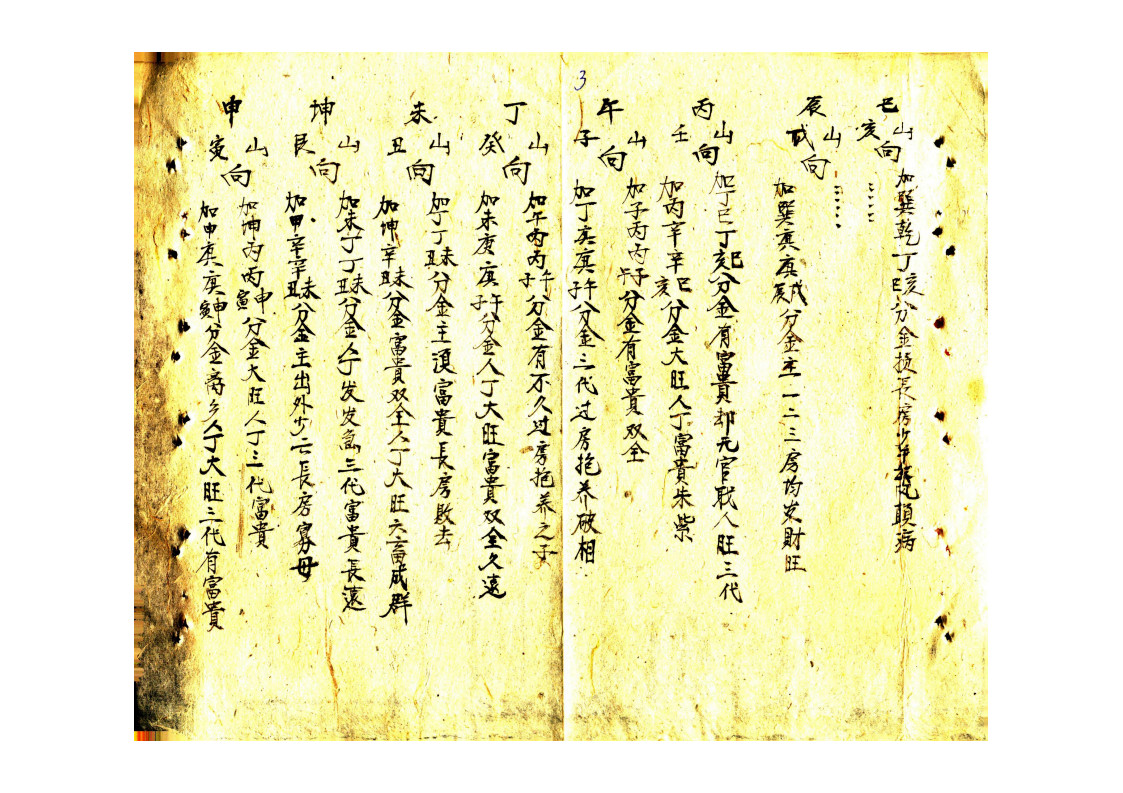 3
巳山亥向
加巽乾丁亥丁巳分金損長房少年瘋頭病
辰山戌向
加巽庚庚戌庚辰分金主一二三房均发財旺
丙山壬向
加丁巳丁亥巳分金有富貴却无官职人旺三代
加丙辛辛巳亥分金大旺人丁富貴朱紫
午山子向
加子丙丙子午分金有富貴双全
加丁庚庚午子分金三代过房抱养破相
丁山癸向
加午丙丙午子分金有不久过房抱养之子
加未庚庚午子分金人丁大旺富貴双全久遠
未山丑向
加丁丁未丑分金主退富貴長房敗去
加坤辛未丑分金富貴双全人丁大旺六畜成群
坤山艮向
加未丁丁未丑分金人丁发发急三代富貴長遠
加申辛辛未丑分金主出外少亡長房寡母
申山寅向
加坤丙丙申寅分金大旺人丁三代富貴
加申庚庚申寅分金离乡人丁大旺三代有富貴